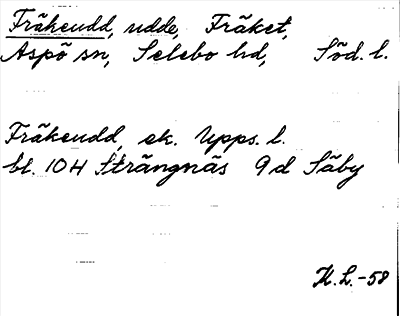 Fräkeudd, udde, Fräket,
Aspö sn, Selebo hd, Söd. l.
Fräkeudd, ek. Upps. l.
bl. 104 Strängnäs 9d Säby
K.L.-58